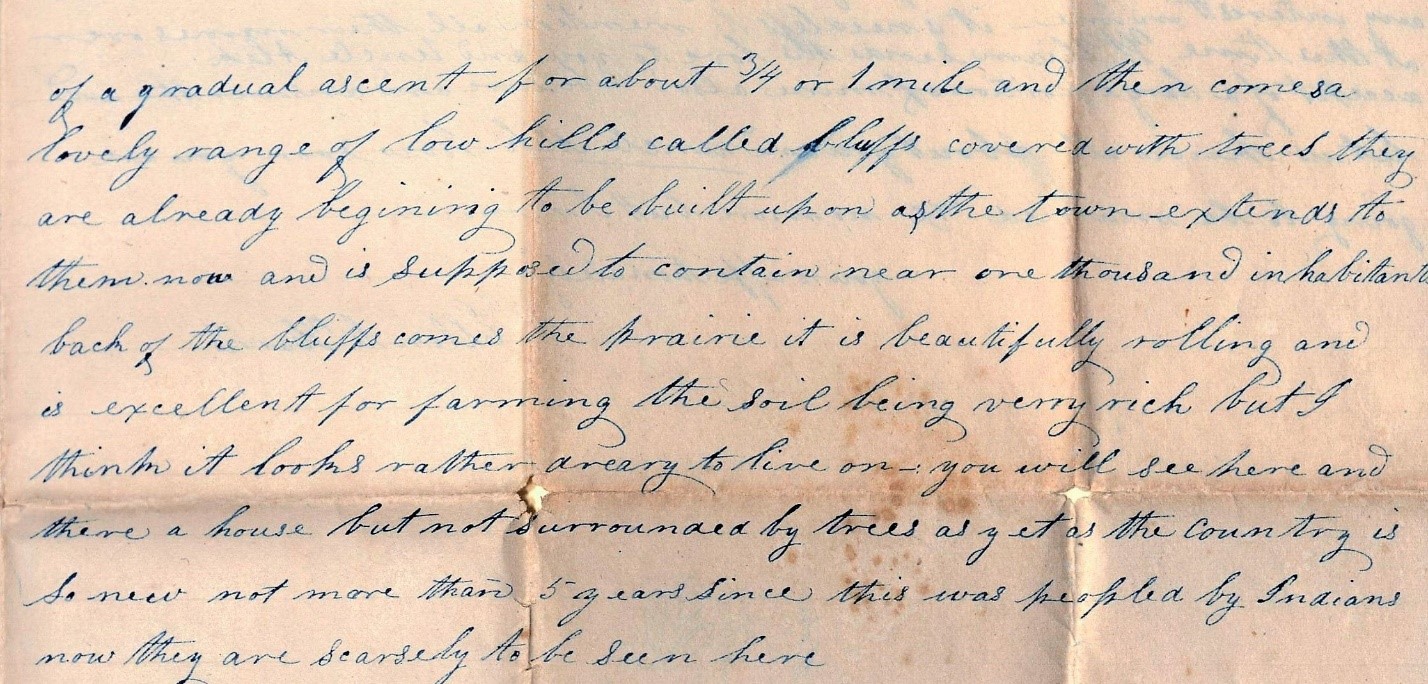 of a gradual ascent for about 3/4 or 1 mile and then comes a
lovely range of low hills called bluffs covered with trees they
are already begining to be built upon as the town extends to
them now and is supposed to contain near one thousand inhabitants
back of the bluffs comes the prairie it is beautifully rolling and
is excellent for farming the soil being verry rich but I
think it looks rather dreary to live on - you will see here and
there a house but not surrounded by trees as yet as the country is
so new not more than 5 years since this was peopled by Indians
now they are scarsely to be seen here